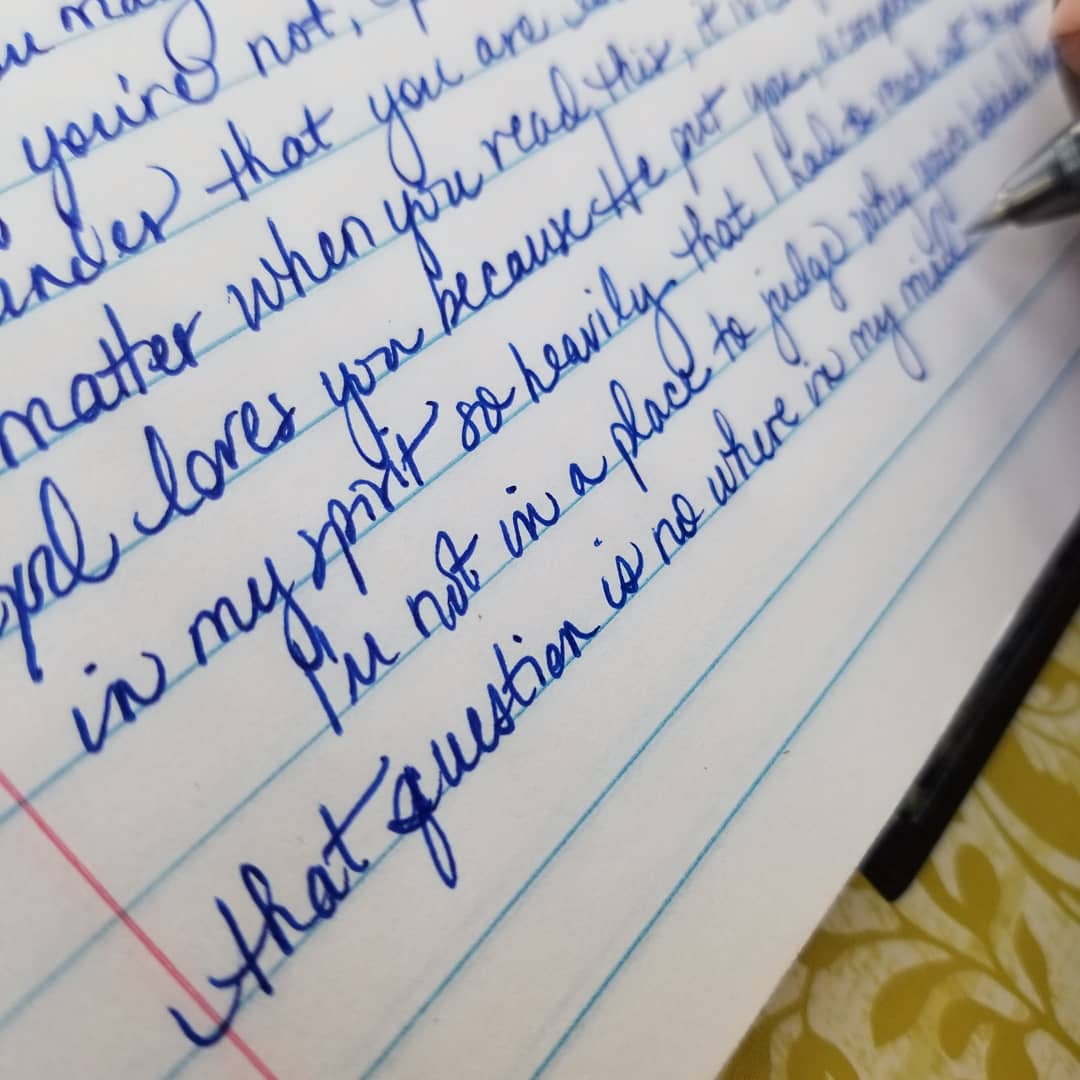 you're not,
that you are
matter when you read this, it is
loves you because He put you, a
in my spirit so heavily that I had to reach out to
I'm not in a place to judge why you're behind
that question is no where in my mind